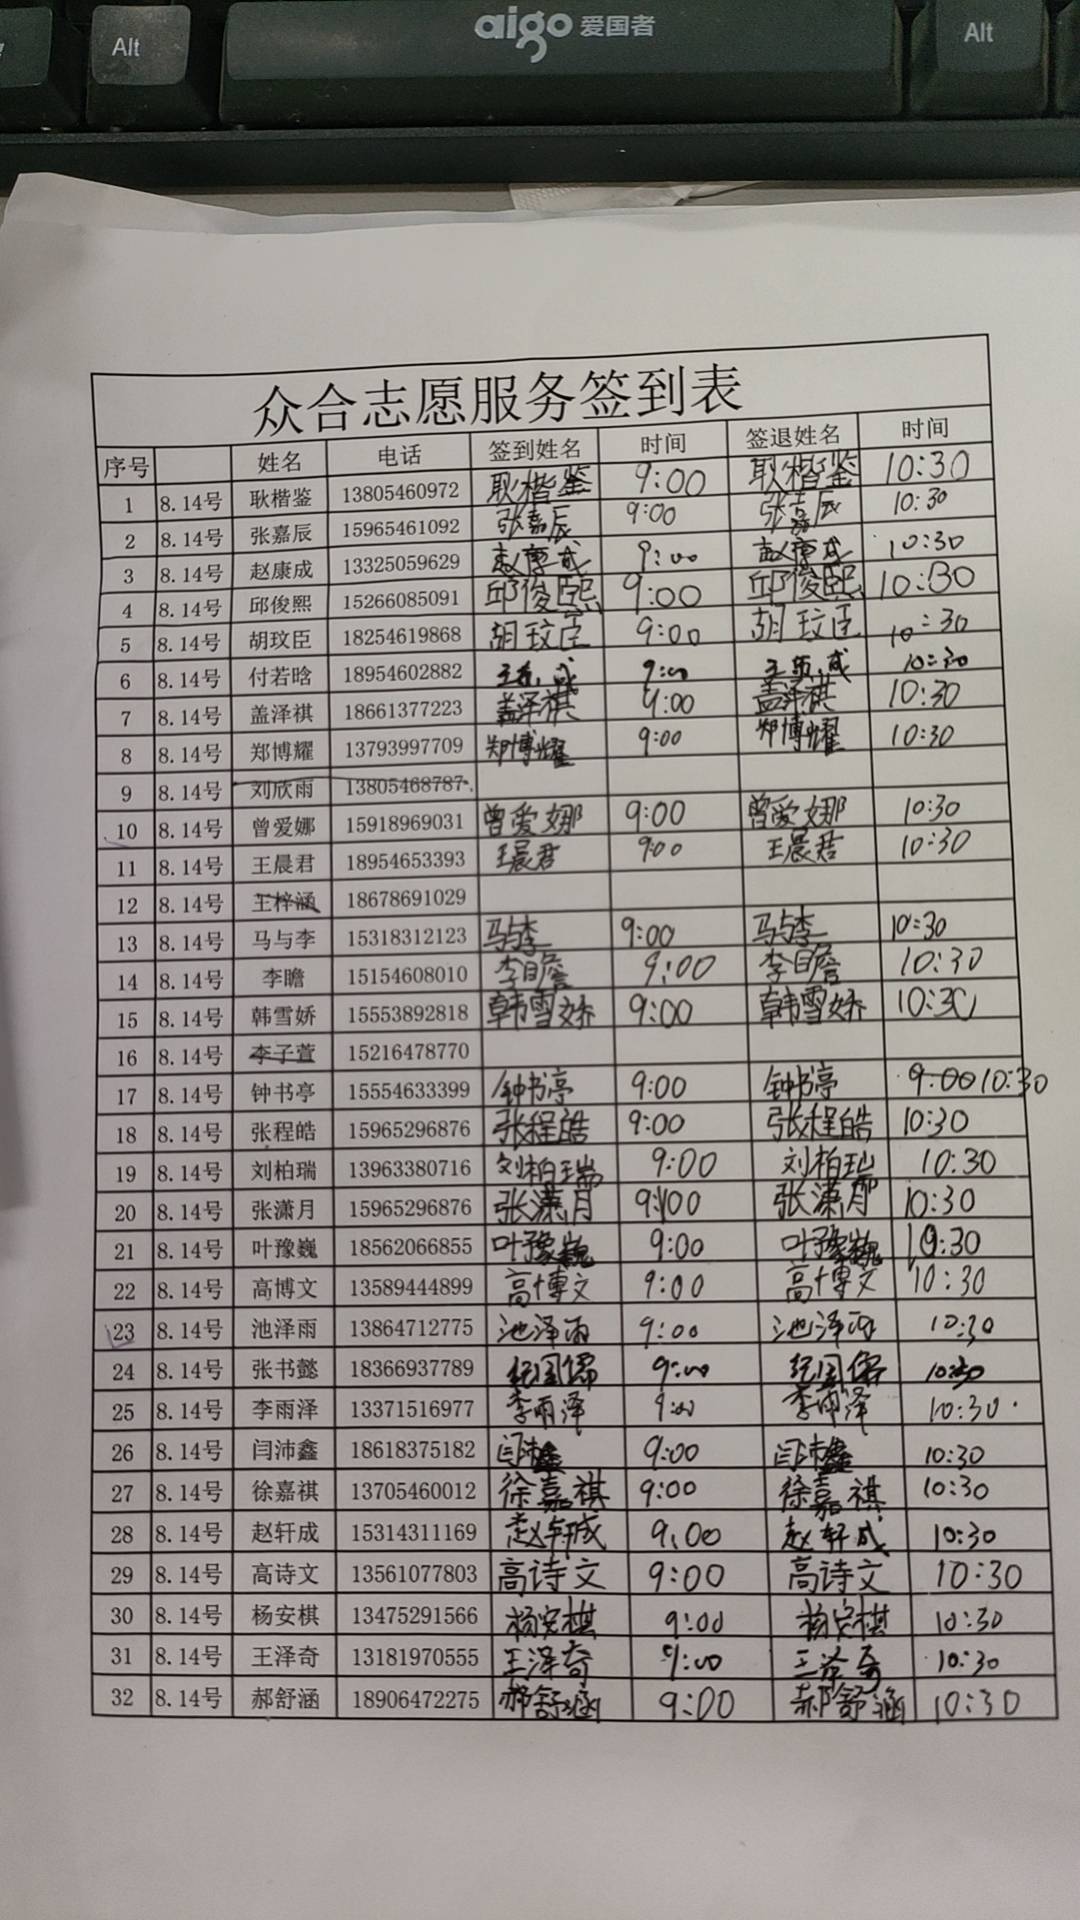 Alt
aigo 爱国者
Alt
众合志愿服务签到表
序号 姓名 电话 签到姓名 时间 签退姓名 时间
1 8.14号 耿楷鉴 13805460972 耿楷鉴 9:00 耿楷鉴 10:30
2 8.14号 张嘉辰 15965461092 张嘉辰 9:00 张嘉辰 10:30
3 8.14号 赵康成 13325059629 赵康成 9:00 赵康成 10:30
4 8.14号 邱俊熙 15266085091 邱俊熙 9:00 邱俊熙 10:30
5 8.14号 胡玟臣 18254619868 胡玟臣 9:00 胡玟臣 10:30
6 8.14号 付若晗 18954602882 9:00 10:30
7 8.14号 盖泽祺 18661377223 盖泽祺 9:00 盖泽祺 10:30
8 8.14号 郑博耀 13793997709 郑博耀 9:00 郑博耀 10:30
9 8.14号 刘欣雨 13805468787
10 8.14号 曾爱娜 15918969031 曾爱娜 9:00 曾爱娜 10:30
11 8.14号 王晨君 18954653393 王晨君 9:00 王晨君 10:30
12 8.14号 王梓涵 18678691029
13 8.14号 马与李 15318312123 马与李 9:00 马与李 10:30
14 8.14号 李瞻 15154608010 李瞻 9:00 李瞻 10:30
15 8.14号 韩雪娇 15553892818 韩雪娇 9:00 韩雪娇 10:30
16 8.14号 李子萱 15216478770
17 8.14号 钟书亭 15554633399 钟书亭 9:00 钟书亭 9:00 10:30
18 8.14号 张程皓 15965296876 张程皓 9:00 张程皓 10:30
19 8.14号 刘柏瑞 13963380716 刘柏瑞 9:00 刘柏瑞 10:30
20 8.14号 张潇月 15965296876 张潇月 9:00 张潇月 10:30
21 8.14号 叶豫巍 18562066855 叶豫巍 9:00 叶豫巍 10:30
22 8.14号 高博文 13589444899 高博文 9:00 高博文 10:30
23 8.14号 池泽雨 13864712775 池泽雨 9:00 池泽雨 10:30
24 8.14号 张书懿 18366937789 纪国儒 9:00 纪国儒 10:30
25 8.14号 李雨泽 13371516977 李雨泽 9:00 李雨泽 10:30
26 8.14号 闫沛鑫 18618375182 闫沛鑫 9:00 闫沛鑫 10:30
27 8.14号 徐嘉祺 13705460012 徐嘉祺 9:00 徐嘉祺 10:30
28 8.14号 赵轩成 15314311169 赵轩成 9:00 赵轩成 10:30
29 8.14号 高诗文 13561077803 高诗文 9:00 高诗文 10:30
30 8.14号 杨安棋 13475291566 杨安棋 9:00 杨安棋 10:30
31 8.14号 王泽奇 13181970555 王泽奇 9:00 王泽奇 10:30
32 8.14号 郝舒涵 18906472275 郝舒涵 9:00 郝舒涵 10:30